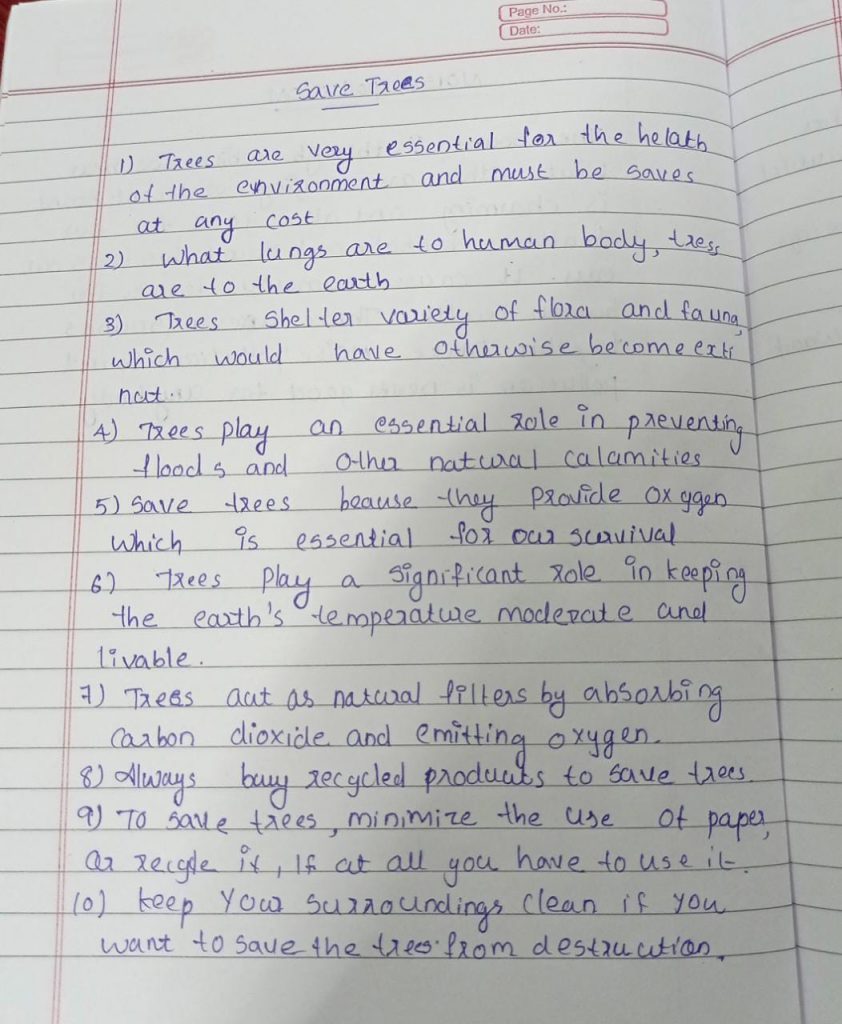 Page No.:
Date:
Save Trees
1) Trees are very essential for the helath
of the environment and must be saves
at any cost
2) What lungs are to human body, tress
are to the earth
3) Trees shelter variety of flora and fauna,
which would have otherwise become exti
nct.
4) Trees play an essential role in preventing
floods and other natural calamities
5) Save trees beause they provide oxygen
which is essential for our survival
6) Trees play a significant role in keeping
the earth's temperature moderate and
livable.
7) Trees act as natural filters by absorbing
Carbon dioxide and emitting oxygen.
8) Always buy recycled products to save trees
9) To save trees, minimize the use of paper,
Or recycle it, If at all you have to use it.
10) keep your surroundings clean if you
want to save the trees from destruction.